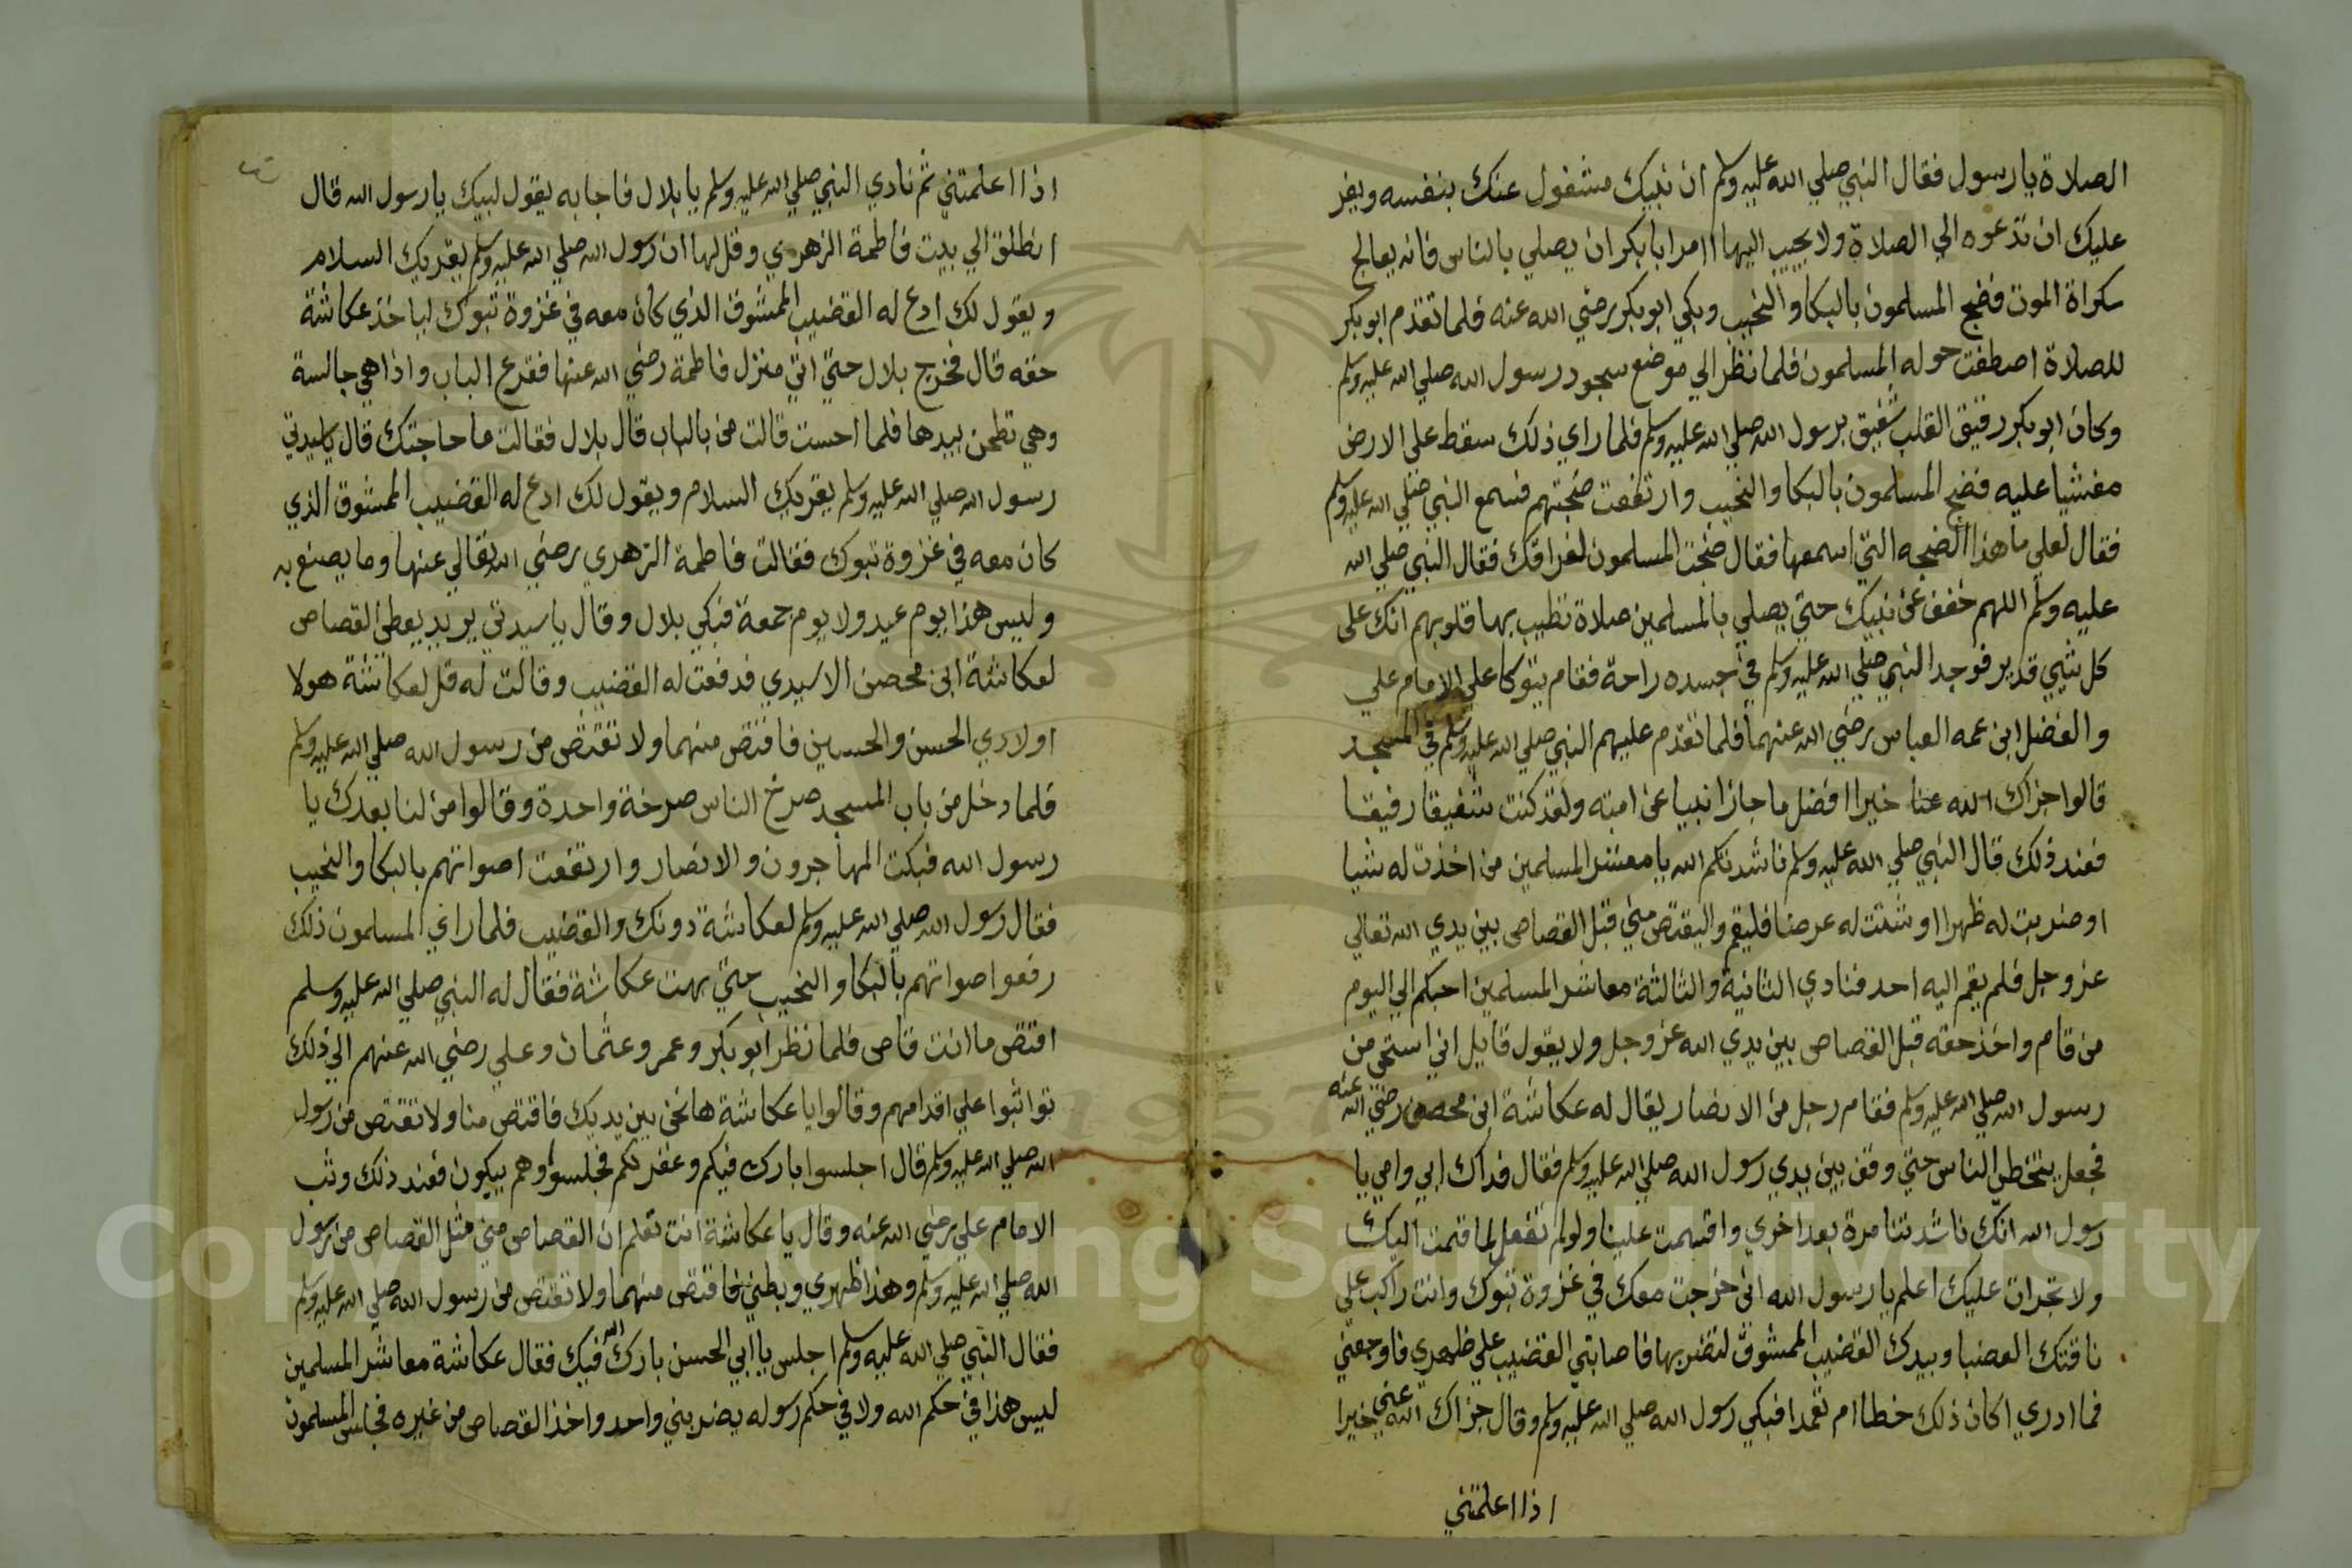 الصلاة يا رسول فقال النبي صلي الله عليه وسلم ان نبيك مشغول عنك بنفسه ويعز
عليك ان تدعوه الي الصلاة ولا يجيب اليها امر ابا بكر ان يصلي بالناس فانه يعالج
سكراة الموت فضج المسلمون بالبكا والنحيب وبكي ابو بكر رضي الله عنه فلما تقدم ابو بكر
للصلاة اصطفت حوله المسلمون فلما نظر الي موضع سجود رسول الله صلي الله عليه وسلم
وكان ابو بكر رقيق القلب شفيق برسول الله صلي الله عليه وسلم فلما راي ذلك سقط على الارض
مغشيا عليه فضج المسلمون بالبكا والنحيب وارتفعت ضجتهم فسمع النبي صلي الله عليه وسلم
فقال لعلي ما هذا الضجه التي اسمعها فقال ضجت المسلمون لفراقك فقال النبي صلي الله
عليه وسلم اللهم خفف عن نبيك حتي يصلي بالمسلمين صلاة تطيب بها قلوبهم انك على
كل شيي قدير فوجد النبي صلي الله عليه وسلم في جسده راحة فقام يتوكا علي الامام علي
والفضل ابن عمه العباس رضي الله عنهما فلما تقدم عليهم النبي صلي الله عليه وسلم في المسجد
قالوا جزاك الله عنا خيرا افضل ما جازا نبيا عن امته ولقد كنت شفيقا رفيقا
فعند ذلك قال النبي صلي الله عليه وسلم ناشدتكم الله يا معشر المسلمين من اخذت له شيا
او ضربت له ظهرا او شتت له عرضا فليقم واليقتص مني قبل القصاص بين يدي الله تعالي
عز وجل فلم يقم اليه احد فنادي الثانية والثالثة معاشر المسلمين احبكم الي اليوم
من قام واخذ حقه قبل القصاص بين يدي الله عز وجل ولا يقول قايل اني استحي من
رسول الله صلي الله عليه وسلم فقام رجل من الانصار يقال له عكاشة ابن محصن رضي الله عنه
فجعل يتخطي الناس حتي وقف بين يدي رسول الله صلي الله عليه وسلم فقال فداك ابي وامي يا
رسول الله انك ناشدتنا مرة بعد اخري واقسمت علينا ولو لم تفعل لما قمت اليك
ولا تجرات عليك اعلم يا رسول الله اني خرجت معك في غزوة تبوك وانت راكب علي
ناقتك العضبا وبيدك القضيب الممشوق لتضربها فاصابتي القضيب علي ظهري فاوجعني
فما ادري اكان ذلك خطا ام تعمدا فبكي رسول الله صلي الله عليه وسلم وقال جزاك الله عني خيرا
اذا اعلمتني
اذا اعلمتني ثم نادي النبي صلي الله عليه وسلم يا بلال فاجابه يقول لبيك يا رسول الله قال
انطلق الي بيت فاطمة الزهري وقل لها ان رسول الله صلي الله عليه وسلم يقريك السلام
ويقول لك ادع له القضيب الممشوق الذي كان معه في غزوة تبوك لياخذ عكاشة
حقه قال فخرج بلال حتي اتي منزل فاطمة رضي الله عنها فقرع الباب واذا هي جالسة
وهي تطحن بيدها فلما احست قالت من بالباب قال بلال فقالت ما حاجتك قال يا سيدتي
رسول الله صلي الله عليه وسلم يقريك السلام ويقول لك ادع له القضيب الممشوق الذي
كان معه في غزوة تبوك فقالت فاطمة الزهري رضي الله تعالي عنها وما يصنع به
وليس هذا يوم عيد ولا يوم جمعة فبكي بلال وقال يا سيدتي يريد يعطي القصاص
لعكاشة ابن محصن الاسيدي فدفعت له القضيب وقالت له قل لعكاشة هولا
اولادي الحسن والحسين فاقتص منهما ولا تقتص من رسول الله صلي الله عليه وسلم
فلما دخل من باب المسجد صرخ الناس صرخة واحدة وقالوا من لنا بعدك يا
رسول الله فبكت المهاجرون والانصار وارتفعت اصواتهم بالبكا والنحيب
فقال رسول الله صلي الله عليه وسلم لعكاشة دونك والقضيب فلما راي المسلمون ذلك
رفعوا صواتهم بالبكا والنحيب حتي بهت عكاشة فقال له النبي صلي الله عليه وسلم
اقتص ما انت قاص فلما نظر ابو بكر وعمر وعثمان وعلي رضي الله عنهم الي ذلك
تواثبوا علي اقدامهم وقالوا يا عكاشة ها نحن بين يديك فاقتص منا ولا تقتص من رسول
الله صلي الله عليه وسلم قال اجلسوا بارك فيكم وغفر لكم فجلسوا وهم يبكون فعند ذلك وثب
الامام علي رضي الله عنه وقال يا عكاشة انت تعلم ان القصاص مني مثل القصاص من رسول
الله صلي الله عليه وسلم وهذا ظهري وبطني فاقتص منهما ولا تقتص من رسول الله صلي الله عليه وسلم
فقال النبي صلي الله عليه وسلم اجلس يا ابي الحسن بارك الله فيك فقال عكاشة معاشر المسلمين
ليس هذا في حكم الله ولا في حكم رسوله يضربني واحد واخذ القصاص من غيره فجلس المسلمون
Copyright © King Saud University
1957